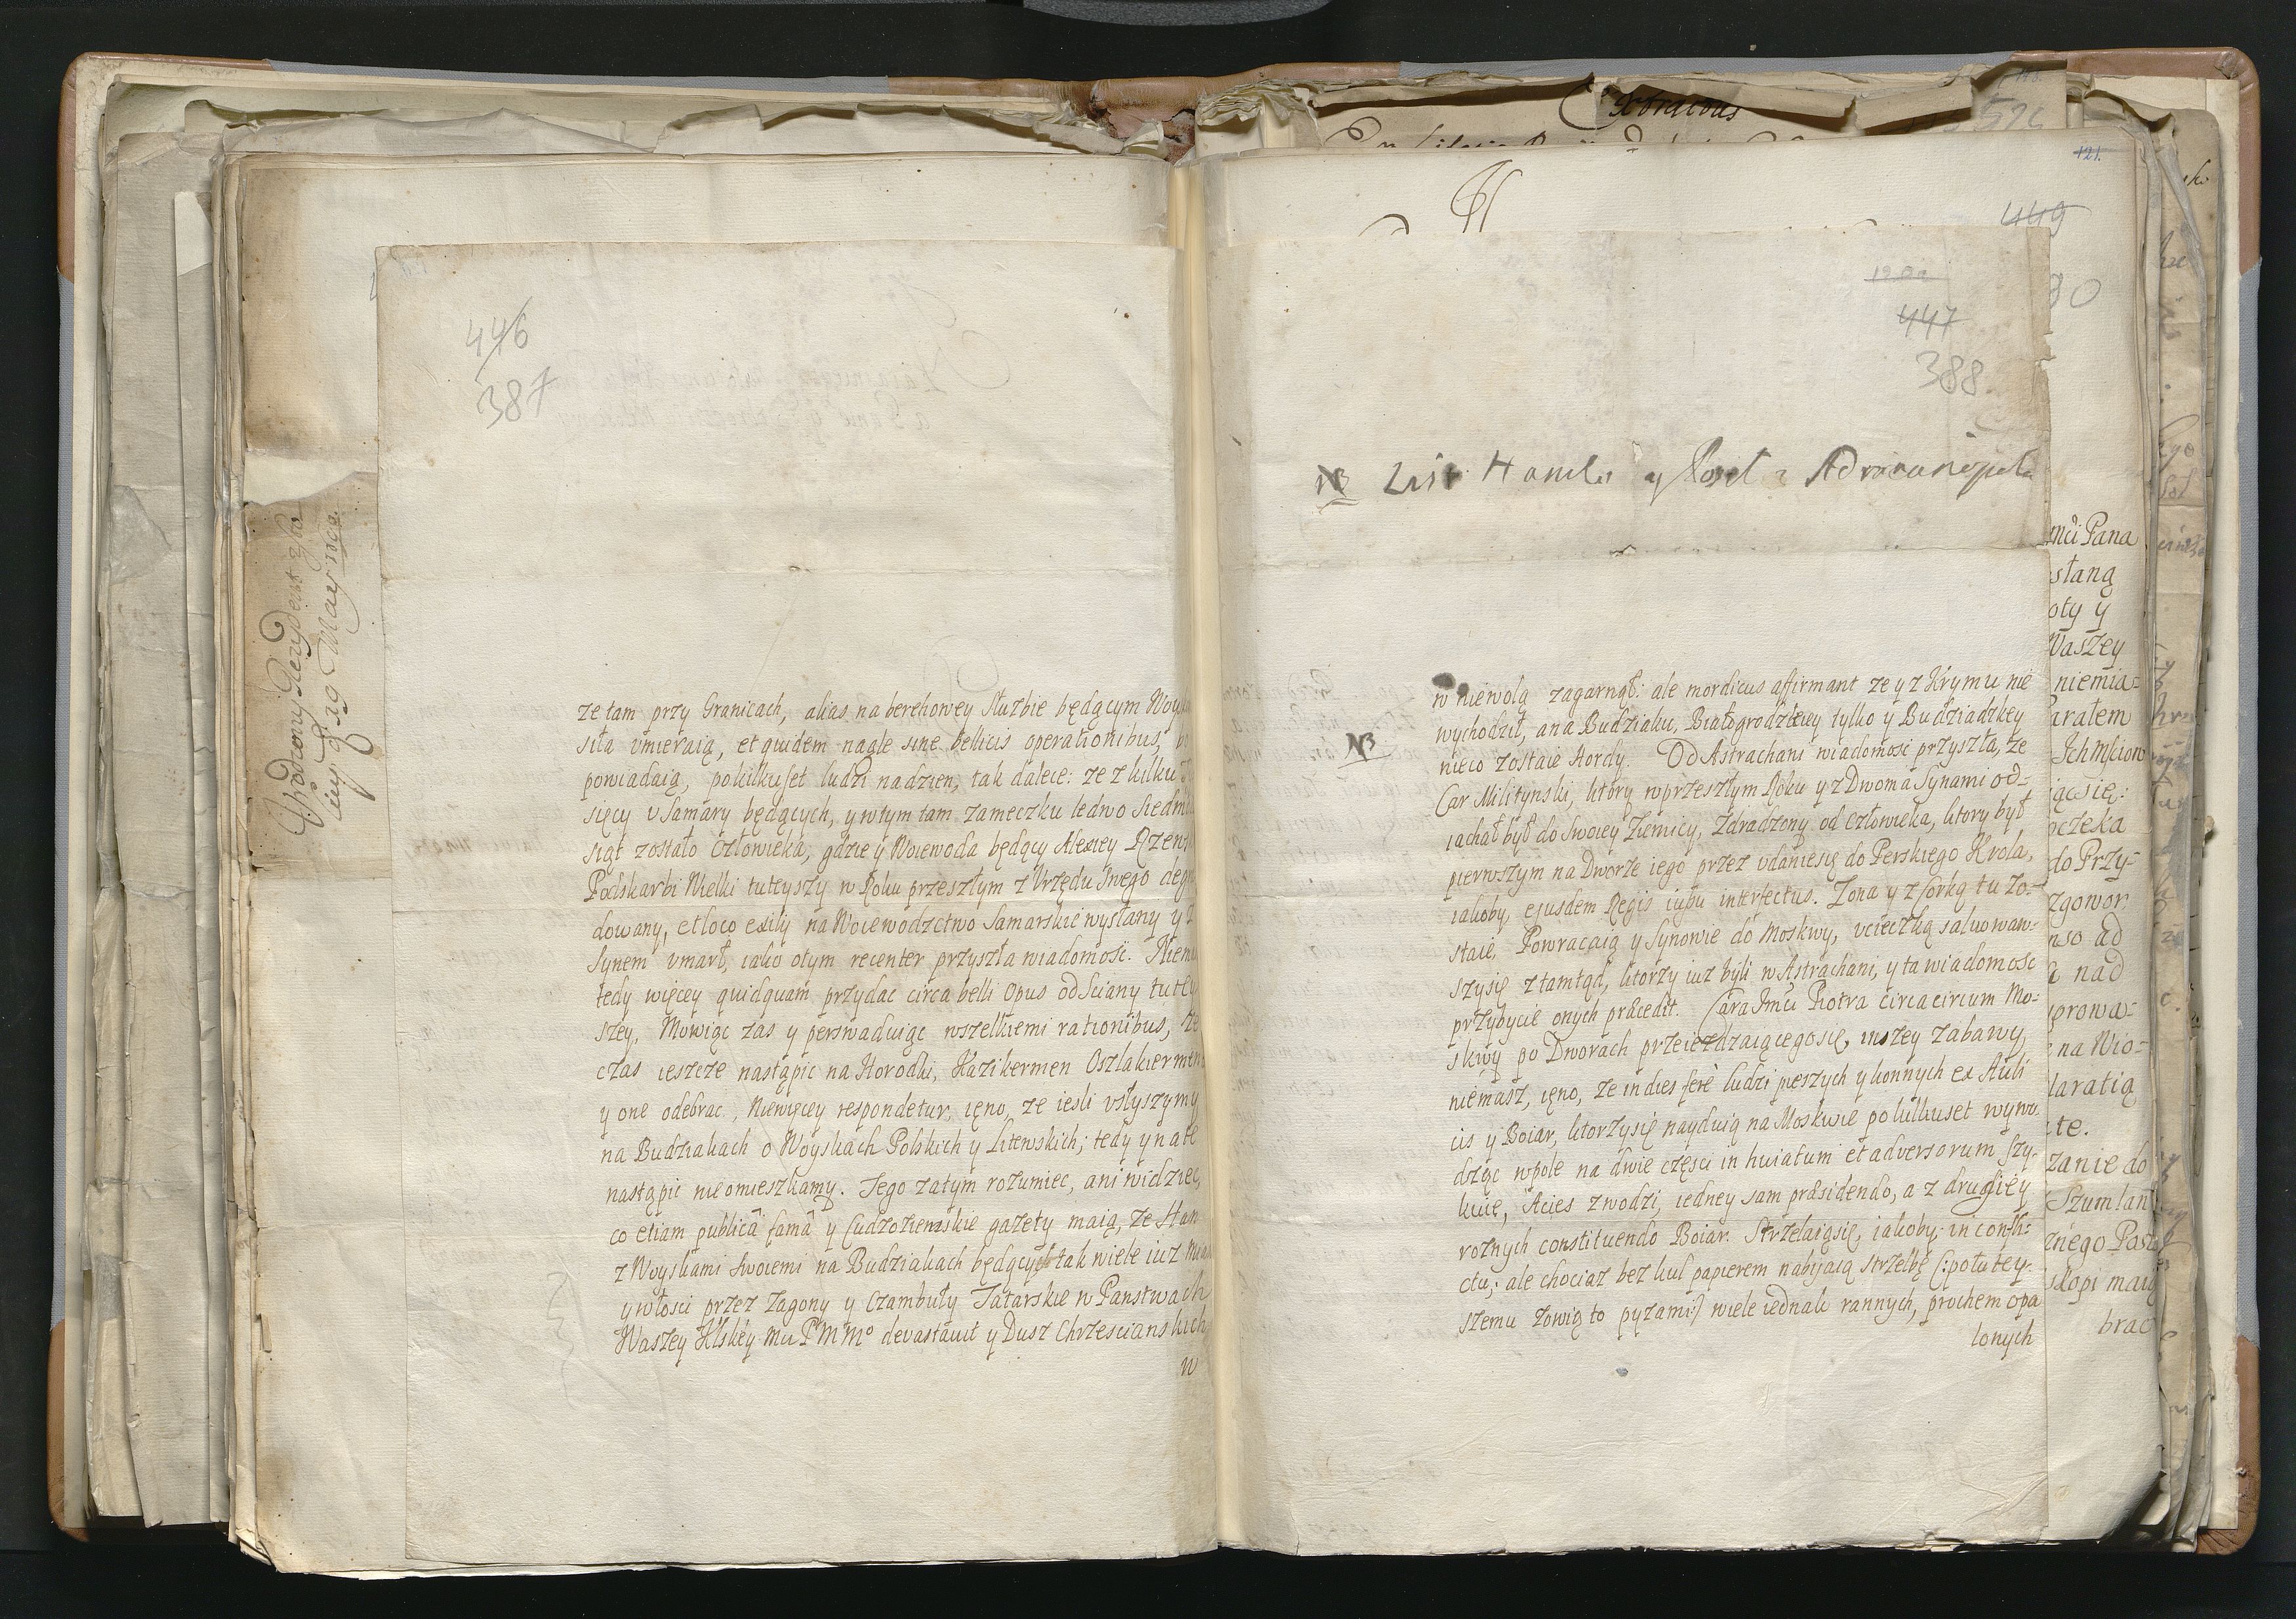 446
387
ze tam przy Granicach, alias na berehowey Służbie będącym Woys
siła vmieraią, et quidem nagle sine bellicis operationibus,
powiadaią, po kilkuset ludzi na dzien, tak dalece: ze z kilku
sięcy v Samary będących, y w tym tam zameczku ledwo Siedm
siąt zostało Człowieka, gdzie y Woiewoda będący Alexiey Rzew
Podskarbi Wielki tuteyszy w Roku przeszłym z Vrzędu Swego degra
dowany, et loco exilij na Woiewodztwo Samarskie wysłany y z
Synem vmarł, iako o tym recenter przyszła wiadomosc. Niemu
tedy więcey quidquam przydac circa belli Opus od Sciany tutey
szey. Mowiąc zas y perswaduiąc wszelkiemi rationibus, ze
czas ieszcze nastąpic na Horodki, Kazikermen Oszlakiermen
y one odebrac, Niewięcey respondetur, ięno, ze iesli vsłyszymy
na Budziakach o Woyskach Polskich y Litewskich; tedy y na te
nastąpic nieomieszkamy. Tego zatym rozumiec, ani widziec,
co etiam publicâ famâ y Cudzoziemskie gazety maią, ze Han
z Woyskami swoiemi na Budziakach będący tak wiele iuz Mia
y włosci przez Zagony y Czambuły Tatarskie w Panstwach
Waszey Kłskey Mci P M Mo devastavit y Dusz Chrzescianskich
w
121.
449
447
388
NB List Hamet y Poset z Adrianopola
w niewolą zagarnął: ale mordicus affirmant ze y z Krymu nie
wychodził, a na Budziaku, Białogrodzkiey tylko y Budziadzkey
NB
nieco zostaie Hordy. Od Astrachani wiadomosc przyszła, ze
Car Militynski, ktory w przeszłym Roku y z Dwoma Synami od-
iachał był do Swoiey Ziemicy, Zdradzony od człowieka, ktory był
pierwszym na Dworze iego przez vdanie się do Perskiego Krola,
iakoby, ejusdem Regis iussu interfectus. Zona y z Corką tu zo-
staie, Powracaią y Synowie do Moskwy, vcieczką salwowaw-
szy się ztamtąd, ktorzy iuz byli w Astrachani, y ta wiadomosc
przybycie onych præcedit. Cara Jmci Piotra circa circum Mo-
skwy po Dworach przeiezdzaiącego się, inszey zabawy,
niemasz, ięno, ze in dies ferè ludzi pieszych y konnych ex Auli
cis y Boiar, ktorzy się nayduią na Moskwie po kilkuset wywo
dząc w pole na dwie częsci in huiatum et adversorum szy-
kuie, Acies zwodzi, iedney sam præsidendo, a z drugiey
roznych constituendo Boiar. Strzelaią się, iakoby, in confli-
ctu; ale chociaz bez kul papierem nabijaią strzelbę (:po tutey
szemu zowią to pyzami:) wiele iednak rannych, prochem opa
lonych
mci Pana
staną
oty y
Waszey
niemia-
aratem
Ichmciow
iąc się:
oczeka
do Przy-
zgowor
nso ad
nad
prowa-
na Wio-
laratią
te.
zanie do
Szumlan
znego
słopi maią
brac